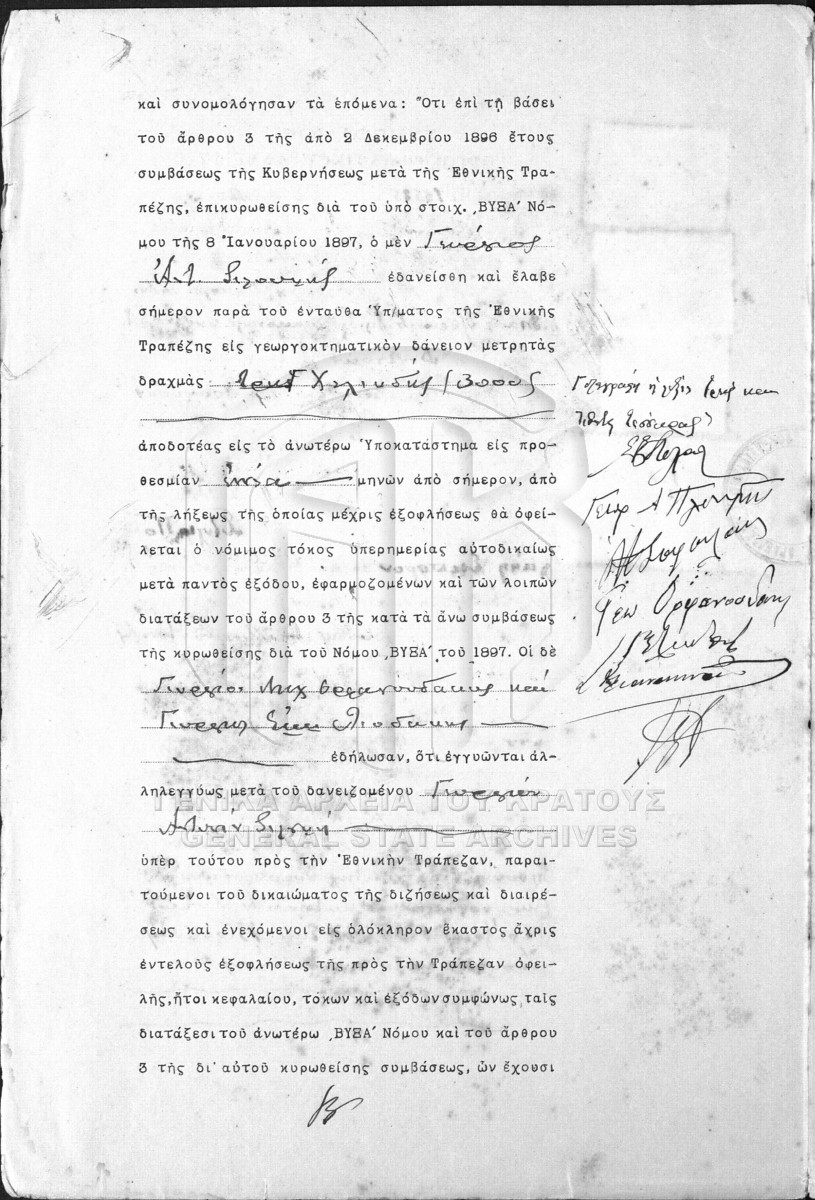 καὶ συνομολόγησαν τὰ ἑπόμενα: Ὅτι ἐπὶ τῇ βάσει
τοῦ ἄρθρου 3 τῆς ἀπὸ 2 Δεκεμβρίου 1896 ἔτους
συμβάσεως τῆς Κυβερνήσεως μετὰ τῆς Ἐθνικῆς Τρα-
πέζης, ἐπικυρωθείσης διὰ τοῦ ὑπὸ στοιχ. ͵ΒΥΞΑ′ Νό-
μου τῆς 8 Ἰανουαρίου 1897, ὁ μὲν Γεώργιος
ἐδανείσθη καὶ ἔλαβε
σήμερον παρὰ τοῦ ἐνταῦθα Ὑπ/ματος τῆς Ἐθνικῆς
Τραπέζης εἰς γεωργοκτηματικὸν δάνειον μετρητὰς
δραχμὰς Χιλιάδας (3000)
ἀποδοτέας εἰς τὸ ἀνωτέρω Ὑποκατάστημα εἰς προ-
θεσμίαν ἐννέα μηνῶν ἀπὸ σήμερον, ἀπὸ
τῆς λήξεως τῆς ὁποίας μέχρις ἐξοφλήσεως θὰ ὀφεί-
λεται ὁ νόμιμος τόκος ὑπερημερίας αὐτοδικαίως
μετὰ παντὸς ἐξόδου, ἐφαρμοζομένων καὶ τῶν λοιπῶν
διατάξεων τοῦ ἄρθρου 3 τῆς κατὰ τὰ ἄνω συμβάσεως
τῆς κυρωθείσης διὰ τοῦ Νόμου ͵ΒΥΞΑ′ τοῦ 1897. Οἱ δὲ
Γεώργιος Μιχ Ορφανουδάκης καὶ
Γεώργιος
ἐδήλωσαν, ὅτι ἐγγυῶνται ἀλ-
ληλεγγύως μετὰ τοῦ δανειζομένου Γεωργίου
ὑπὲρ τούτου πρὸς τὴν Ἐθνικὴν Τράπεζαν, παραι-
τούμενοι τοῦ δικαιώματος τῆς διζήσεως καὶ διαιρέ-
σεως καὶ ἐνεχόμενοι εἰς ὁλόκληρον ἕκαστος ἄχρις
ἐντελοῦς ἐξοφλήσεως τῆς πρὸς τὴν Τράπεζαν ὀφει-
λῆς, ἤτοι κεφαλαίου, τόκων καὶ ἐξόδων συμφώνως ταῖς
διατάξεσι τοῦ ἀνωτέρω ͵ΒΥΞΑ′ Νόμου καὶ τοῦ ἄρθρου
3 τῆς δι' αὐτοῦ κυρωθείσης συμβάσεως, ὧν ἔχουσι
Γεω Ορφανουδάκης
ΓΕΝΙΚΑ ΑΡΧΕΙΑ ΤΟΥ ΚΡΑΤΟΥΣ
GENERAL STATE ARCHIVES